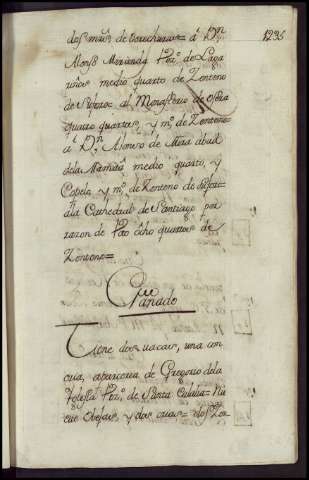 1235
dos mrs. de derechuras= á Dn.
Alonso Miranda Vzo. de Laga
riños medio quarto de Zenteno
de al Monasterio de osera
quatro quartas, y mo. de Zenteno
á Dn. Alonso de Mera abad
dela medio quarto, y
Copelo y mo. de Zenteno de
ála Cathedral de Santiago por
razon de Vto ocho quartos de
Zenteno=
Ganado
Tiene dos vacas, una con
cria, aparceria de Gregorio dela
Yglesia Vzo. de Santa Eulalia= Nu
eve obejas, y dos crias= dos Zer